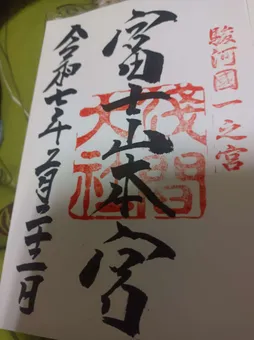 駿河國一之宮
富士山本宮
浅間大社
令和七年二月二十二日